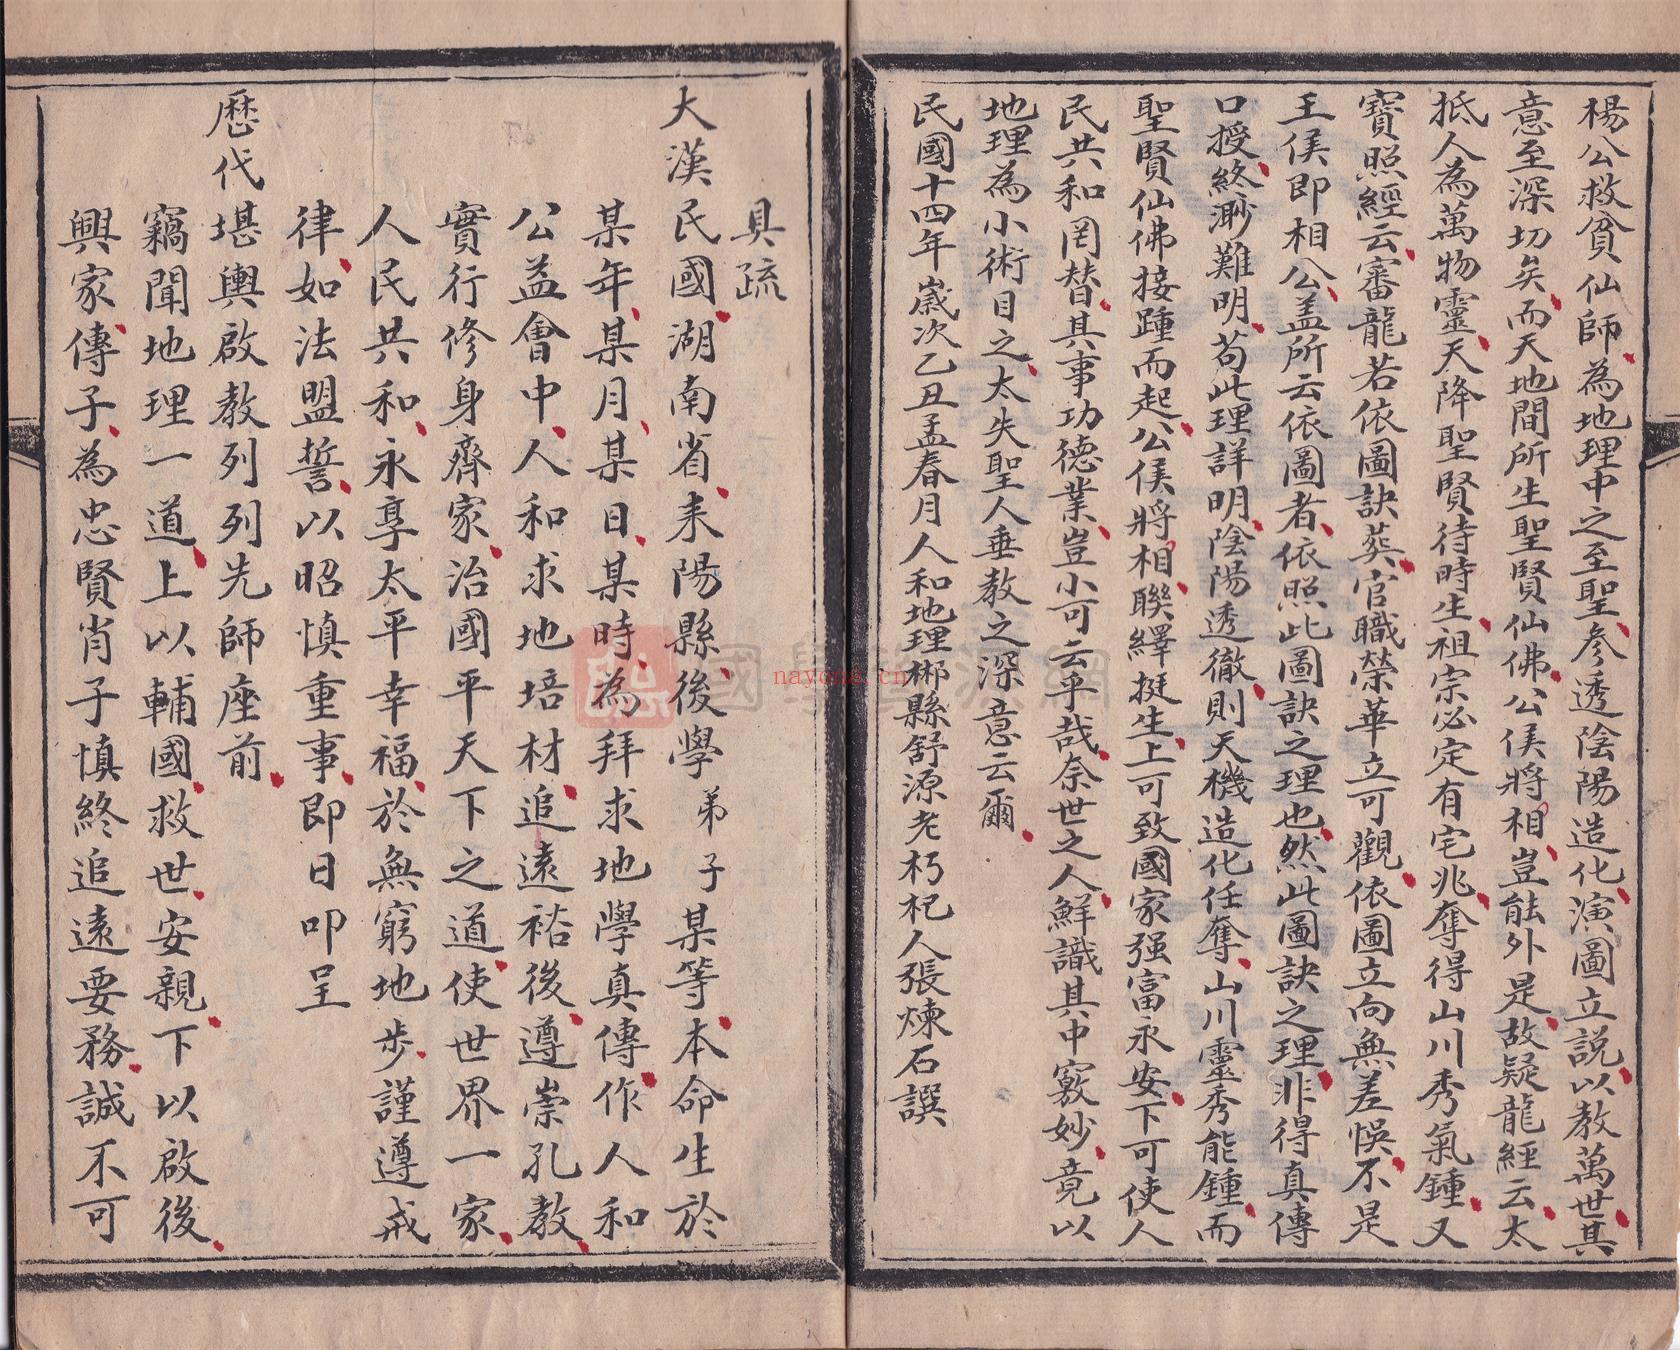 楊公救貧仙師為地理中之至聖參透陰陽造化演圖立說以教萬世其
意至深切矣而天地間所生聖賢仙佛公侯將相豈能外是故疑龍經云太
抵人為萬物靈天降聖賢待時生祖宗必定有宅兆奪得山川秀氣鍾又
寶照經云審龍若依圖訣葬官職榮華立可觀依圖立向無差悞不是
王侯即相公盖所云依圖者依照此圖訣之理也然此圖訣之理非得真傳
口授終渺難明苟此理詳明陰陽透徹則天機造化任奪山川靈秀能鍾而
聖賢仙佛接踵而起公侯將相聯繹挺生上可致國家强富永安下可使人
民共和罔替其事功德業豈小可云乎哉奈世之人鮮識其中竅妙竟以
地理為小術目之太失聖人垂教之深意云爾
民國十四年嵗次乙丑孟春月人和地理郴縣舒源老朽杞人張煉石譔
具疏
大漢民國湖南省耒陽縣後學弟子某等本命生於
某年某月某日某時為拜求地學真傳作人和
公益會中人和求地培材追遠裕後遵崇孔教
實行修身齊家治國平天下之道使世界一家
人民共和永享太平幸福於無窮地步謹遵戒
律如法盟誓以昭慎重事即日叩呈
歷代堪輿啟教列列先師座前
竊聞地理一道上以輔國救世安親下以啟後
興家傳子為忠賢肖子慎終追遠要務誠不可
國學資源網
nayona.cn